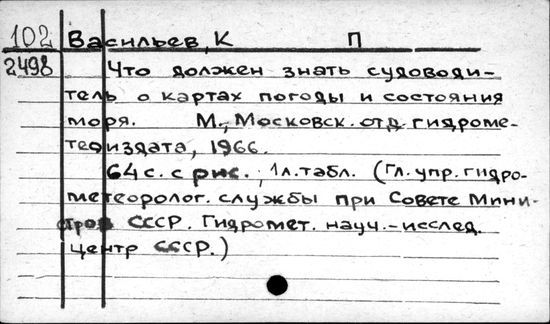 102 Васильев, К П
2498 Что должен знать судоводи-
тель о картах погоды и состояния
моря. М., Московск. отд. гидроме-
теоиздата, 1966.
64 с. с рис., 1 л. табл. (Гл. упр. гидро-
метеоролог. службы при Совете Мини-
стров СССР. Гидромет. науч.-исслед.
центр СССР.)